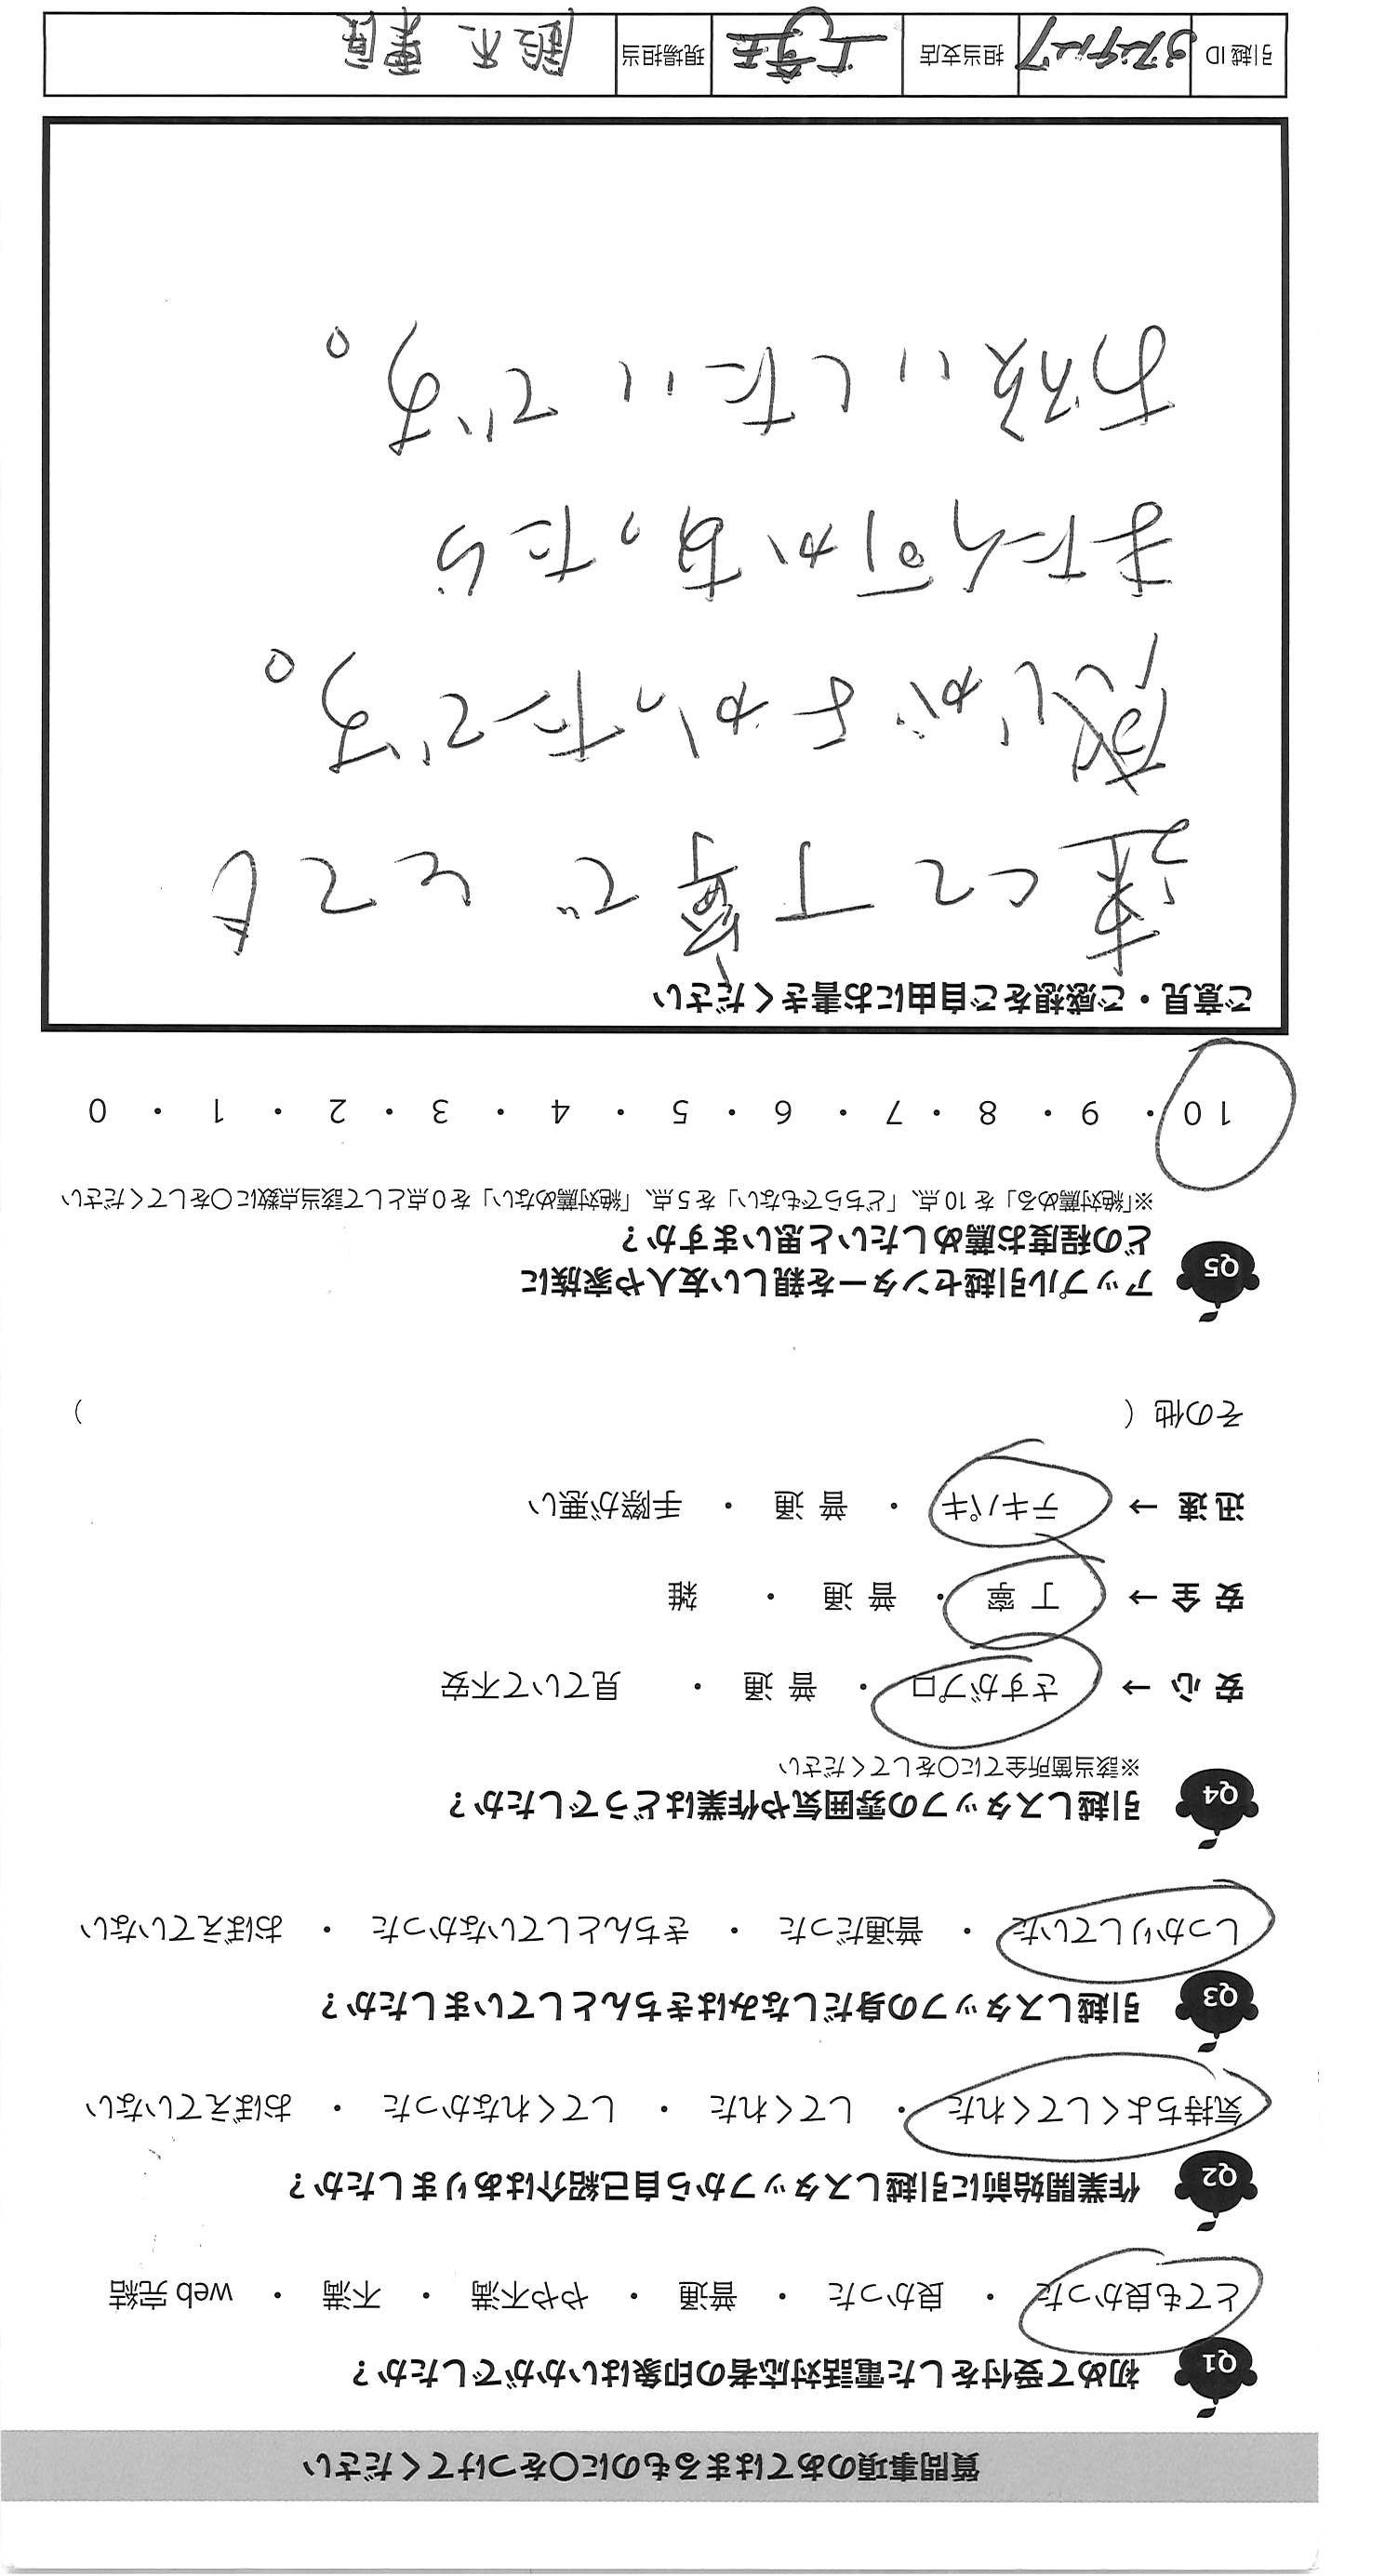 質問事項のあてはまるものに〇をつけてください
Q1 初めて受付をした電話対応者の印象はいかがでしたか？
とても良かった ・ 良かった ・ 普通 ・ やや不満 ・ 不満 ・ web 完結
Q2 作業開始前に引越しスタッフから自己紹介はありましたか？
気持ちよくしてくれた ・ してくれた ・ してくれなかった ・ おぼえていない
Q3 引越しスタッフの身だしなみはきちんとしていましたか？
しっかりしていた ・ 普通だった ・ きちんとしていなかった ・ おぼえていない
Q4 引越しスタッフの雰囲気や作業はどうでしたか？
※該当箇所全てに〇をしてください
安 心 → さすがプロ ・ 普 通 ・ 見ていて不安
安 全 → 丁 寧 ・ 普 通 ・ 雑
迅 速 → テキパキ ・ 普 通 ・ 手際が悪い
その他（ ）
Q5 アップル引越センターを親しい友人や家族に
どの程度お薦めしたいと思いますか？
※「絶対薦める」を 10 点、「どちらでもない」を 5 点、「絶対薦めない」を 0 点として該当点数に〇をしてください
10 ・ 9 ・ 8 ・ 7 ・ 6 ・ 5 ・ 4 ・ 3 ・ 2 ・ 1 ・ 0
ご意見・ご感想をご自由にお書きください
速くて丁寧でとても
感じがよかったです。
また何かあったら
お願いしたいです。
引越 ID 担当支店 現場担当